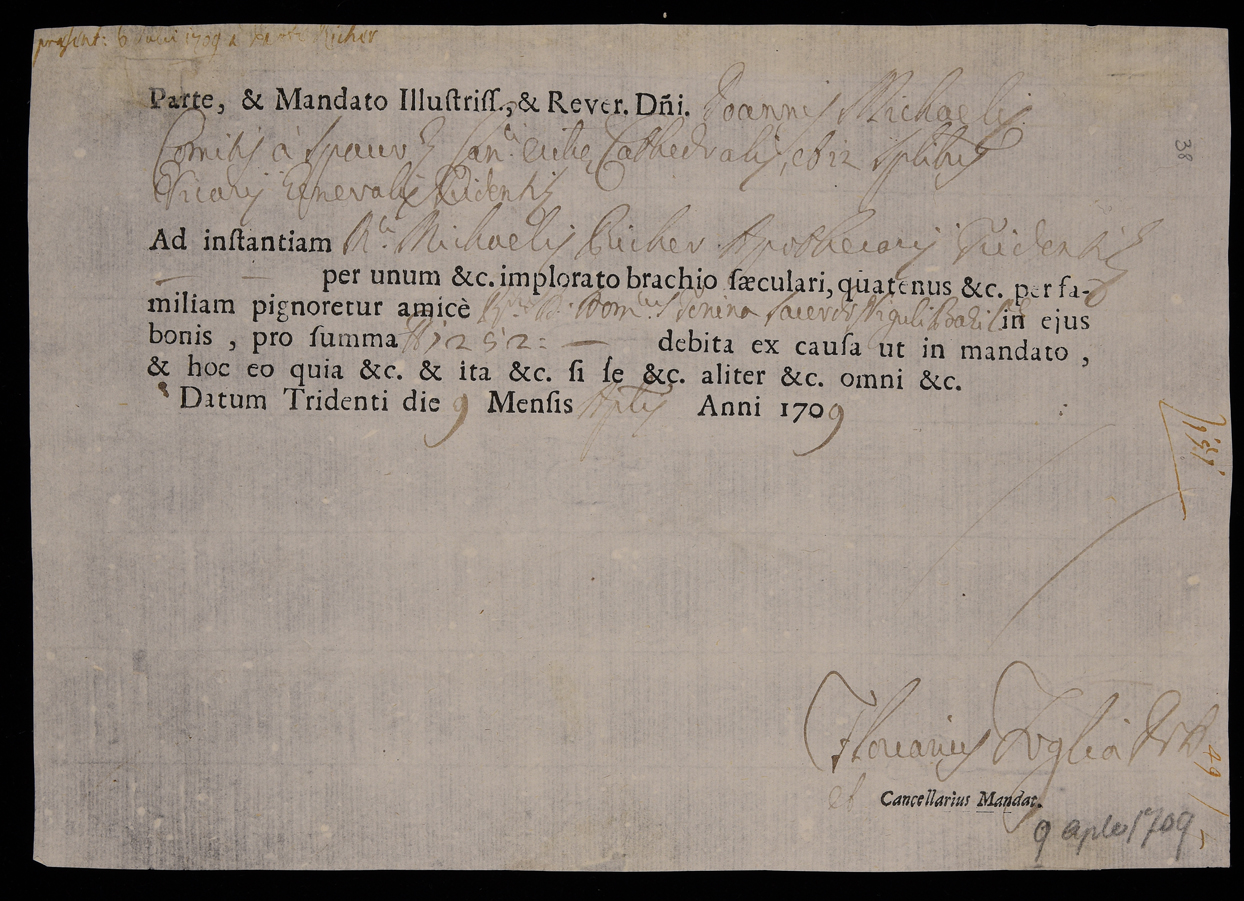 præsent: 6 Julii 1709 à Richer
Parte, & Mandato Illuſtriſſ., & Rever. Dñi. Joannis Michaelis
Comitis à Spaur & Cathedralis, et in Splibus
Vicarij Generalis Tridenti
Ad inſtantiam Michaelis Richer Apothecarij Tridenti
per unum &c. implorato brachio ſæculari, quatenus &c. per fa-
miliam pignoretur amicè in ejus
bonis, pro ſumma 1252: — debita ex cauſa ut in mandato,
& hoc eo quia &c. & ita &c. ſi ſe &c. aliter &c. omni &c.
Datum Tridenti die 9 Menſis Aplis Anni 1709
38
Florianus
et Cancellarius Mandat.
9 aple 1709